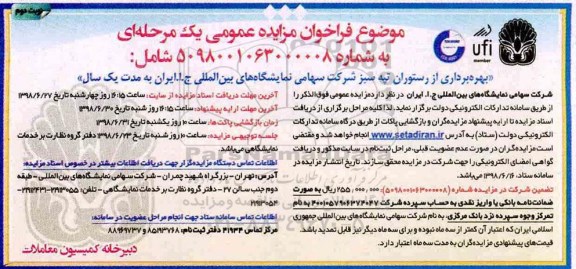 نوبت دوم
موضوع فراخوان مزایده عمومی یک مرحله‌ای
به شماره ۵۰۹۸۰۰۱۰۶۳۰۰۰۰۰۸ شامل:
«بهره‌برداری از رستوران تپه سبز شرکت سهامی نمایشگاه‌های بین‌المللی ج.ا.ایران به مدت یک سال»
ufi
member
شرکت سهامی نمایشگاه‌های بین‌المللی ج.ا. ایران در نظر دارد مزایده عمومی فوق‌الذکر را
از طریق سامانه تدارکات الکترونیکی دولت برگزار نماید. لذا کلیه مراحل برگزاری از دریافت
اسناد مزایده تا ارایه پیشنهاد مزایده‌گران و بازگشایی پاکات از طریق درگاه سامانه تدارکات
الکترونیکی دولت (ستاد) به آدرس www.setadiran.ir انجام خواهد شد و مقتضی
است مزایده‌گران در صورت عدم عضویت قبلی، مراحل ثبت‌نام در سایت مذکور و دریافت
گواهی امضای الکترونیکی را جهت شرکت در مزایده محقق سازند. تاریخ انتشار مزایده در
سامانه ستاد، ۱۳۹۸/۶/۶ می‌باشد.
تضمین شرکت در مزایده شماره (۵۰۹۸۰۰۱۰۶۳۰۰۰۰۰۸): ۲۵۵,۰۰۰,۰۰۰ ریال به صورت
ضمانت‌نامه بانکی یا واریز نقدی به حساب سپرده شرکت
تمرکز وجوه سپرده نزد بانک مرکزی، به نام شرکت سهامی نمایشگاه‌های بین‌المللی جمهوری
اسلامی ایران که اعتبار آن کمتر از سه ماه نبوده و برای سه ماه دیگر نیز قابل تمدید باشد.
قیمت‌های پیشنهادی مزایده‌گران به مدت سه ماه اعتبار دارد.
آخرین مهلت دریافت اسناد مزایده از سایت: ساعت ۱۶:۱۵ روز چهارشنبه تاریخ ۱۳۹۸/۶/۲۷
آخرین مهلت ارایه پیشنهاد: ساعت ۱۶:۱۵ روز شنبه تاریخ ۱۳۹۸/۶/۳۰
زمان بازگشایی پاکت‌ها: ساعت ۱۰ روز یکشنبه تاریخ ۱۳۹۸/۶/۳۱
جلسه توجیهی مزایده: ساعت ۱۰ روز شنبه تاریخ ۱۳۹۸/۶/۲۳ دفتر گروه نظارت بر خدمات
نمایشگاهی می‌باشد.
اطلاعات تماس دستگاه مزایده‌گزار جهت دریافت اطلاعات بیشتر در خصوص اسناد مزایده:
آدرس: تهران - بزرگراه شهید چمران - شرکت سهامی نمایشگاه‌های بین‌المللی - طبقه
دوم جنب سالن ۲۷ - دفتر گروه نظارت بر خدمات نمایشگاهی - تلفن:
اطلاعات تماس سامانه ستاد جهت انجام مراحل عضویت در سامانه:
مرکز تماس ۴۱۹۳۴ دفتر ثبت‌نام: ۸۵۱۹۳۷۶۸ و ۸۸۹۶۹۷۳۷
دبیرخانه کمیسیون معاملات